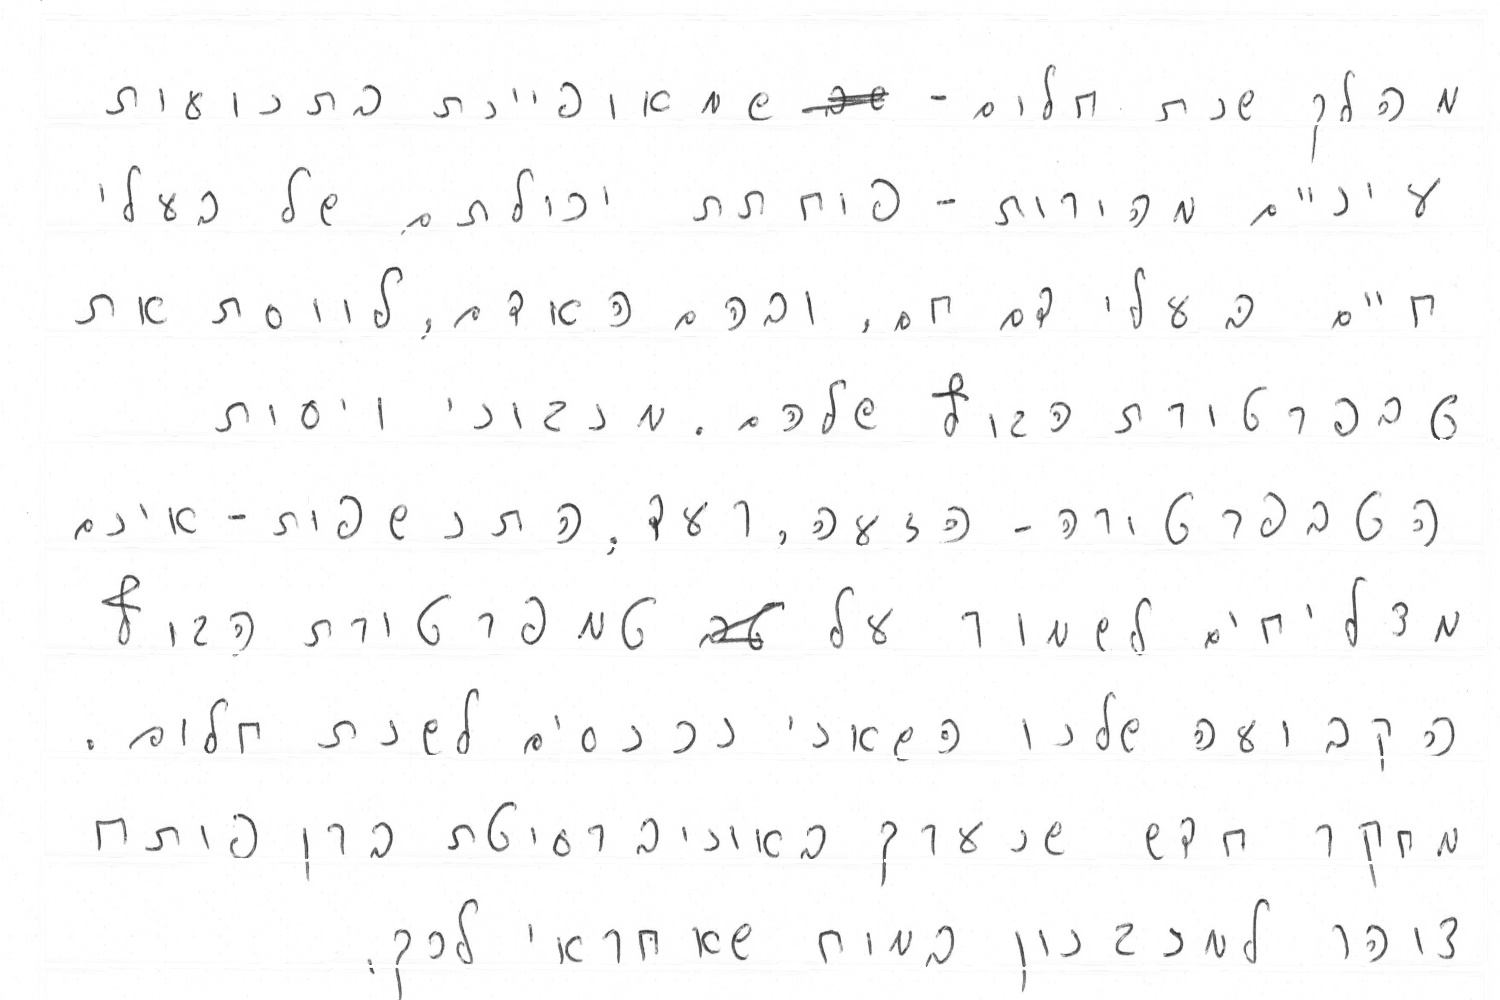 מהלך שנת חלום - שמאופיינת בתנועות
עיניים מהורות - פוחתת יכולתם של בעלי
חיים בעלי דם חם, ובהם האדם, לווסת את
טבפרטורת הגוף שלהם. מנגנוני ויסות
הטבפרטורה - הזעה, רעד, התנשפות - אינם
מצליחים לשמור על טמפרטורת הגוף
הקבועה שלנו השאני נכנסים לשנת חלום.
מחקר חדש שנערך באוניברסיטת ברן פותח
צוהר למנגנון במוח שאחראי לכך.